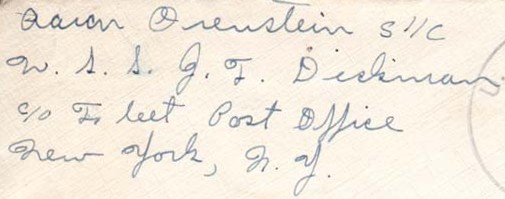 Aaron Orenstein S1/C
U. S. S. J. F. Dickman
c/o Fleet Post Office
New York, N.Y.